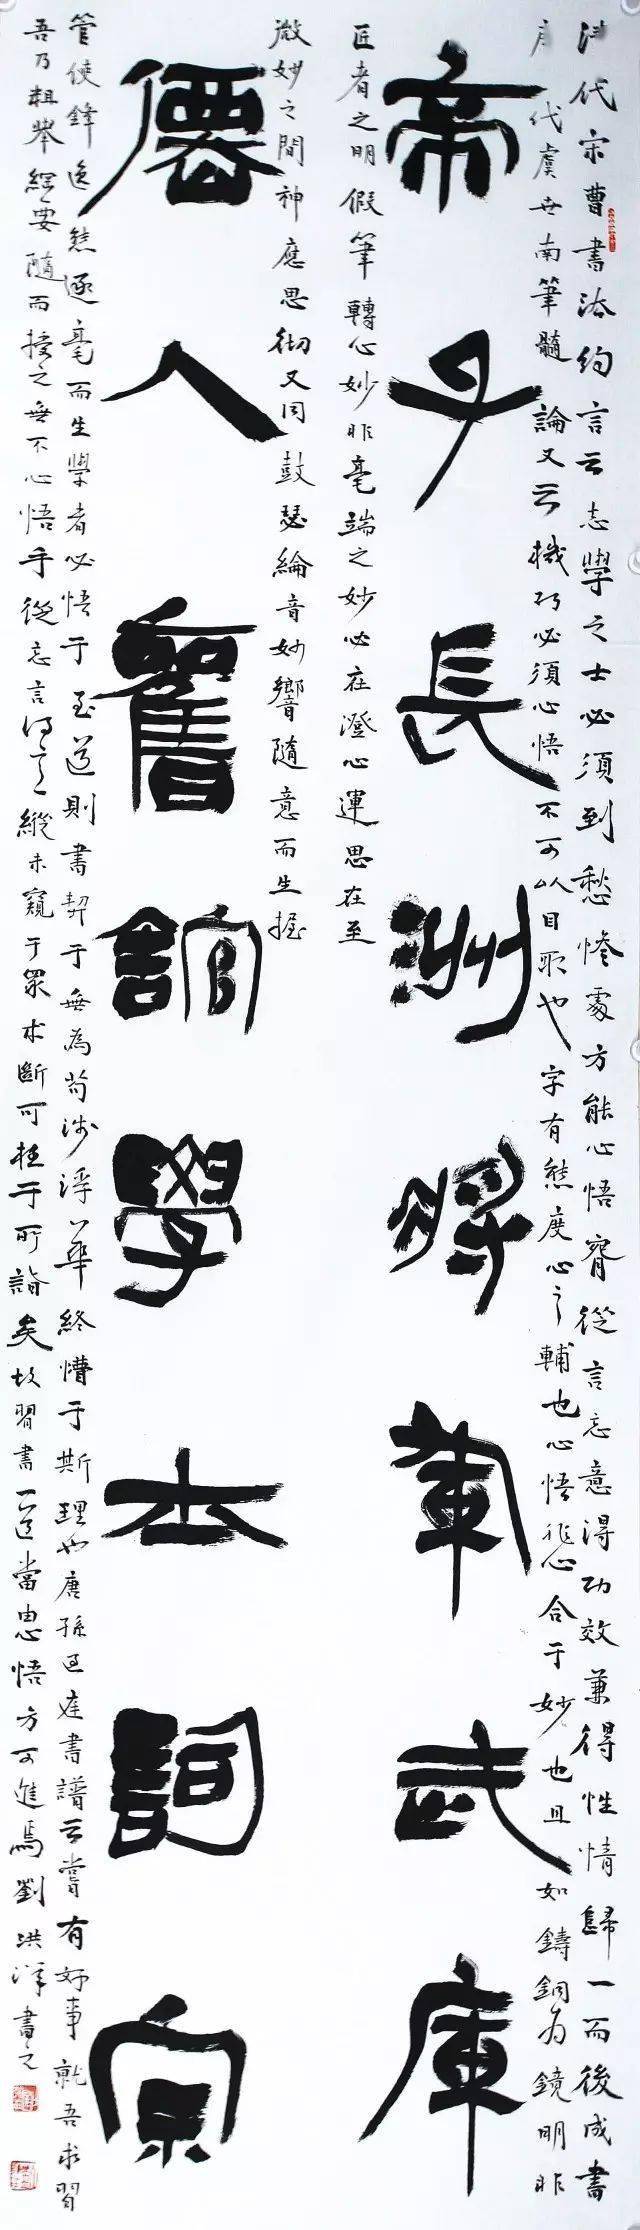 清代宋曹書法約言云志學之士必須到愁慘處方能心悟從言忘意得功效兼得性情歸一而後成書
唐代虞世南筆髓論又云機巧必須心悟不可以目取也字有態度心之輔也心悟非心合于妙也且如鑄銅為鏡明非
帝子長洲將軍武庫
匠者之明假筆轉心妙非毫端之妙必在澄心運思在至
微妙之間神應思徹又同鼓瑟綸音妙響隨意而生握
僊人舊館學士詞宗
管使鋒逸態逐毫而生學者必悟于至道則書契于無為苟涉浮華終懵于斯理也唐孫過庭書譜云嘗有好事就吾求習
吾乃粗舉綱要隨而授之無不心悟手從忘言得意縱未窺于眾術斷可極于所詣矣故習書一道當由心悟方可進焉劉洪洋書之